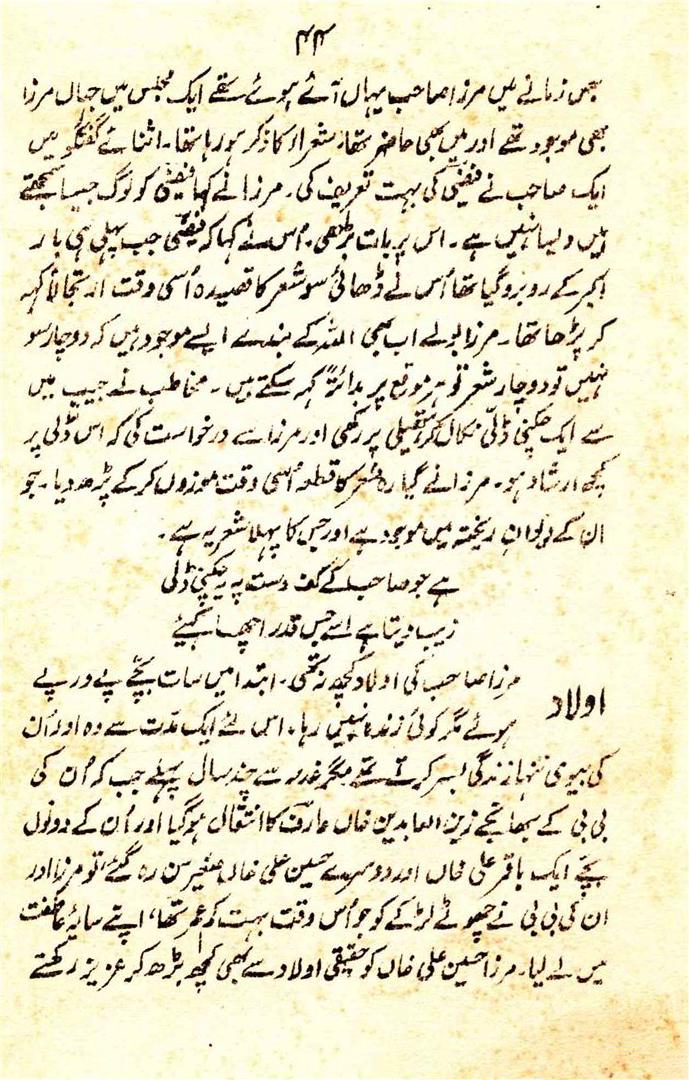 ۴۴
جس زمانے میں مرزا صاحب یہاں آئے ہوئے تھے ایک مجلس میں جہاں مرزا
بھی موجود تھے اور میں بھی حاضر تھا، شعراء کا ذکر ہو رہا تھا۔ اثنائے گفتگو میں
ایک صاحب نے فیضی کی بہت تعریف کی۔ مرزا نے کہا فیضی کو لوگ جیسا سمجھتے
ہیں ویسا نہیں ہے۔ اس پر بات بڑھی، اُس نے کہا کہ فیضی جب پہلی ہی بار
اکبر کے روبرو گیا تھا اُس نے ڈھائی سو شعر کا قصیدہ اُسی وقت ارتجالاً کہہ
کر پڑھا تھا۔ مرزا بولے اب بھی اللہ کے بندے ایسے موجود ہیں کہ دو چار سو
نہیں تو دو چار شعر تو ہر موقع پر بداہۃً کہہ سکتے ہیں۔ مخاطب نے جیب میں
سے ایک چکنی ڈلّی نکال کر ہتھیلی پر رکھی اور مرزا سے درخواست کی کہ اس ڈلی پر
کچھ ارشاد ہو۔ مرزا نے گیارہ شعر کا قطعہ اُسی وقت موزوں کر کے پڑھ دیا۔ جو
ان کے دیوانِ ریختہ میں موجود ہے اور جس کا پہلا شعر یہ ہے۔
ہے جو صاحب کے کف دست پہ یہ چکنی ڈلی
زیب دیتا ہے اسے جس قدر اچھا کہیے
اولاد مرزا صاحب کی اولاد کچھ نہ تھی۔ ابتدا میں سات بچّے پے در پے
ہوئے مگر کوئی زندہ نہیں رہا۔ اس لئے ایک مدّت سے وہ اور اُن
کی بیوی تنہا زندگی بسر کرتے تھے مگر غدر سے چند سال پہلے جب کہ اُن کی
بی بی کے بھانجے زین العابدین خاں عارف کا انتقال ہو گیا اور اُن کے دونوں
بچّے ایک باقر علی خاں اور دوسرے حسین علی خاں صغیر سن رہ گئے، تو مرزا اور
ان کی بی بی نے چھوٹے لڑکے کو جو اُس وقت بہت کم عمر تھا، اپنے سایۂ عاطفت
میں لے لیا۔ مرزا حسین علی خاں کو حقیقی اولاد سے بھی کچھ بڑھ کر عزیز رکھتے